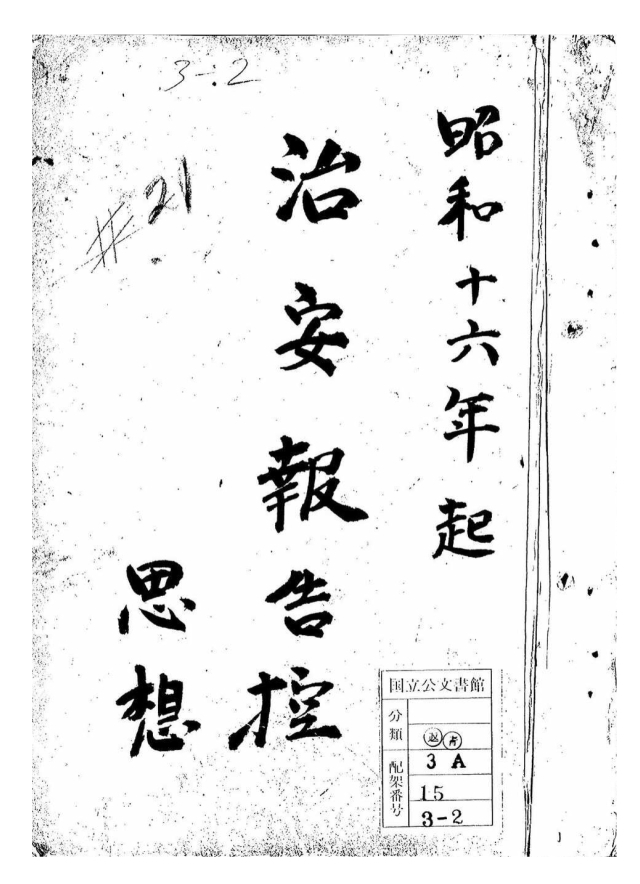 昭和十六年起
治安報告控
思想
3-2
#21
国立公文書館
分類
返青
配架番号
3 A
15
3-2